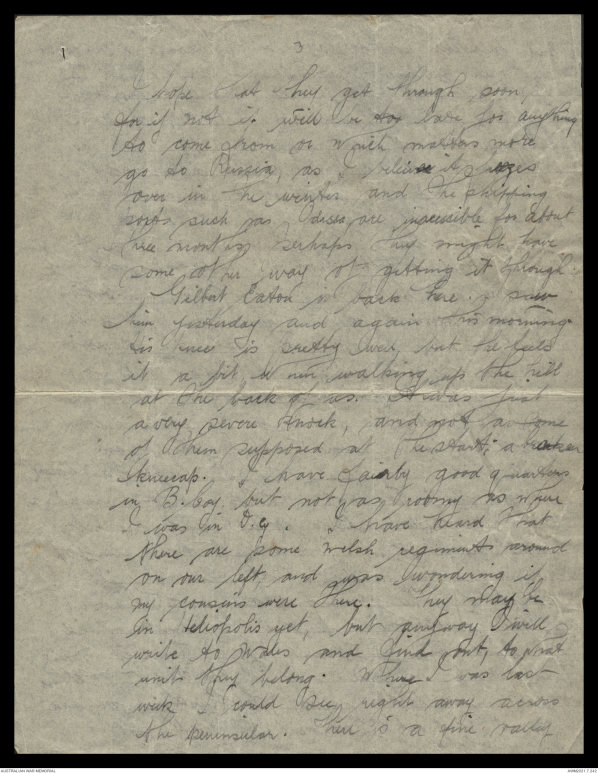 3
I hope that they get through soon,
for if not it will be too late for anything
to come from or which matters more
go to Russia, as I believe it freezes
over in the winter and the shipping
ports such as Odessa are inaccessible for about
three months, perhaps they might have
some other way of getting it through.
Gilbert Eaton is back here. I saw
him yesterday and again this morning.
His knee is pretty well, but he feels
it a bit when walking up the hill
at the back of us. It was just
a very severe knock, and not as some
of them supposed at the start, a broken
kneecap. I have fairly good quarters
in B. Coy but not as roomy as where
I was in D. Coy. I have heard that
there are some Welsh regiments around
on our left and was wondering if
my cousins were there. They may be
in Heliopolis yet, but anyway I will
write to Wales and find out, to what
unit they belong. Where I was last
week I could see right away across
the peninsular. There is a fine valley
AUSTRALIAN WAR MEMORIAL
AWM2021.7.242